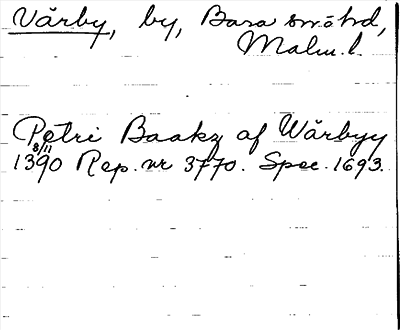 Värby, by, Bara sn o hd,
Malm. l.
Petri Baakz af Wärbyy
8/11
1390 Rep. nr 3770. Spec. 1693.